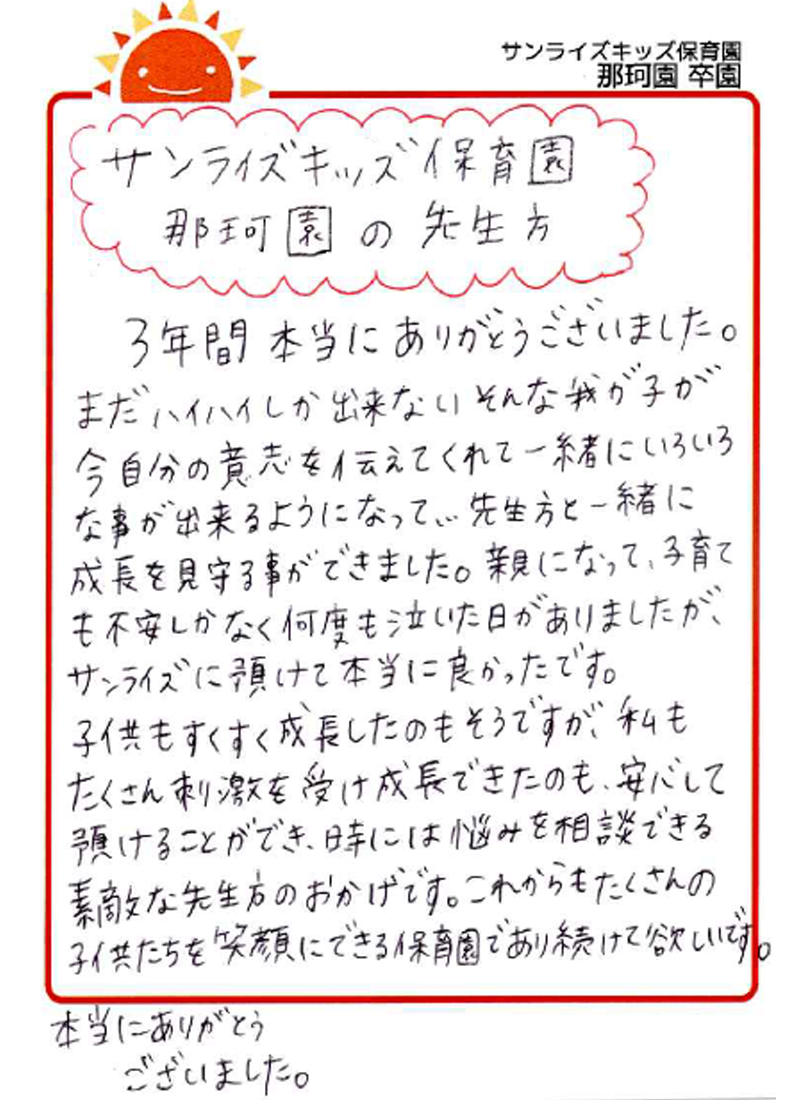 サンライズキッズ保育園
那珂園 卒園
サンライズキッズ保育園
那珂園の先生方
3年間本当にありがとうございました。
まだハイハイしか出来ないそんな我が子が
今自分の意志を伝えてくれて一緒にいろいろ
な事が出来るようになって… 先生方と一緒に
成長を見守る事ができました。親になって、子育て
も不安しかなく何度も泣いた日がありましたが、
サンライズに預けて本当に良かったです。
子供もすくすく成長したのもそうですが、私も
たくさん刺激を受け成長できたのも、安心して
預けることができ、時には悩みを相談できる
素敵な先生方のおかげです。これからもたくさんの
子供たちを笑顔にできる保育園であり続けて欲しいです。
本当にありがとう
ございました。